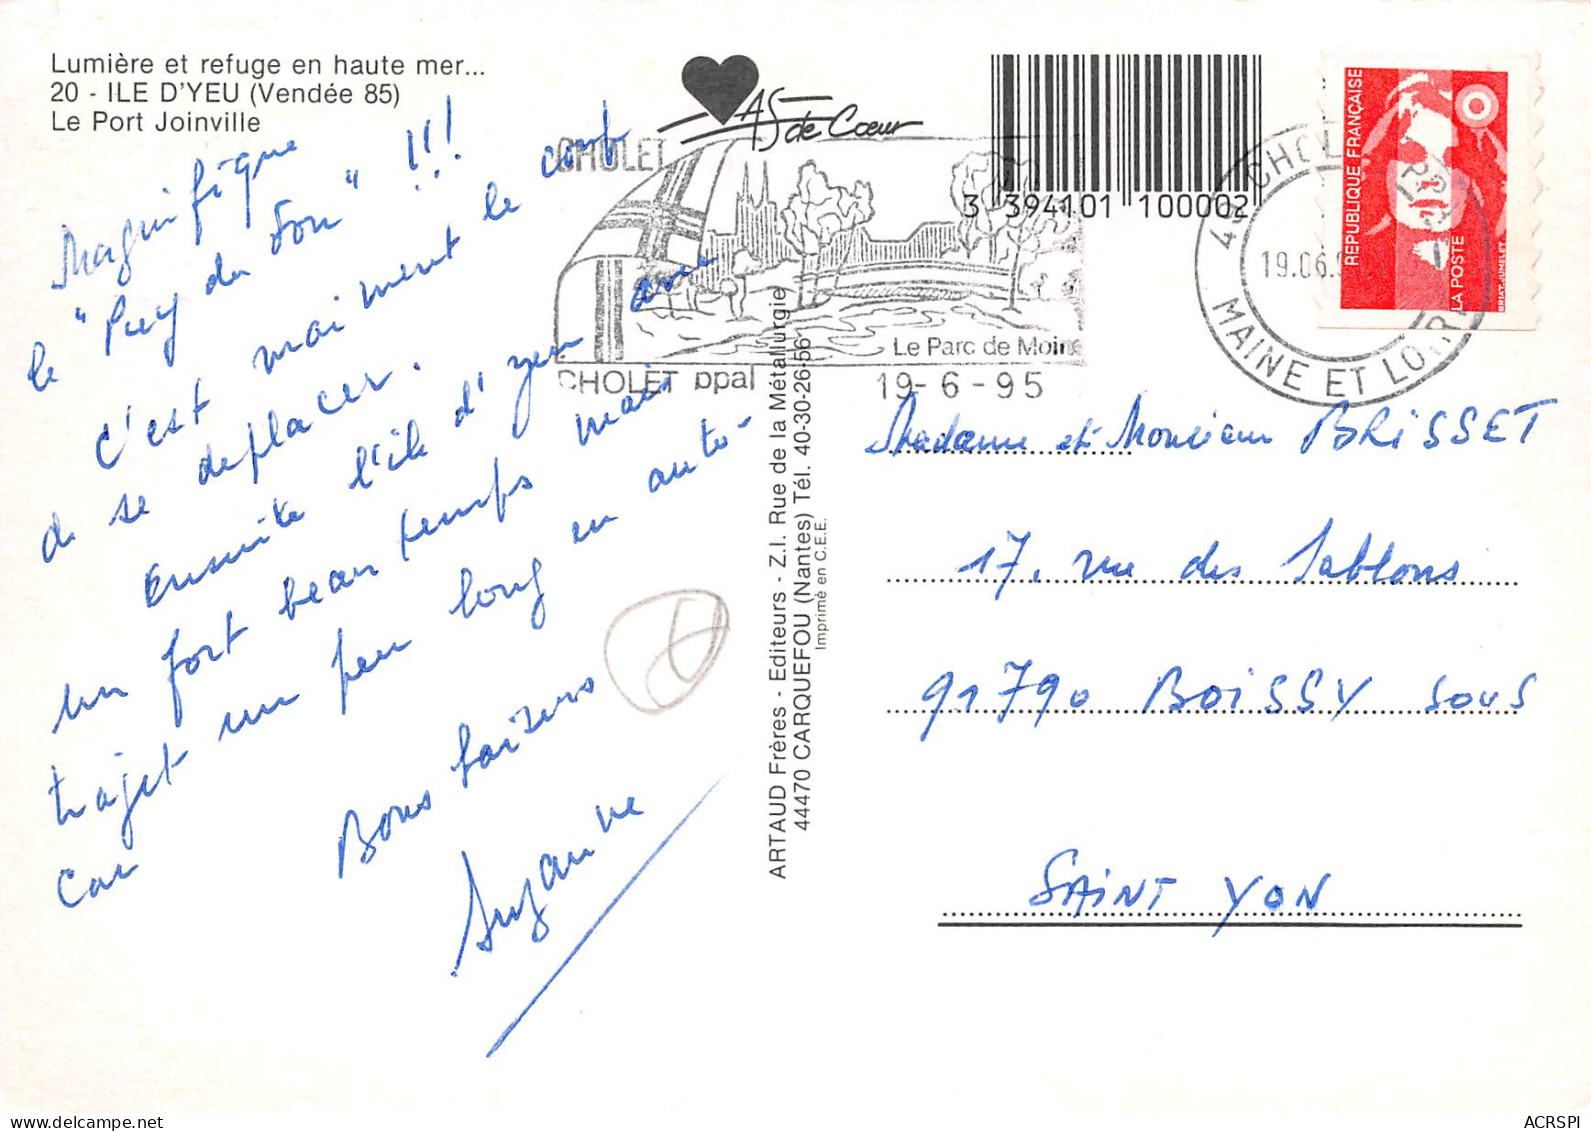 Lumière et refuge en haute mer...
20 - ILE D'YEU (Vendée 85)
Le Port Joinville
Magnifique
le "Puy du Fou" !!!
c'est vraiment le coup
de se deplacer.
Ensuite l'île d'yeu avec
un fort beau temps mais
trajet un peu long en auto-
car
Bons baisers
Suzanne
AS de Cœur
CHOLET
Le Parc de Moine
CHOLET ppal 19-6-95
3 394101 100002
49 CHOLET PPAL
19.06.95
MAINE ET LOIRE
REPUBLIQUE FRANÇAISE
LA POSTE
BRIAT-JUMELET
ARTAUD Frères - Editeurs - Z.I. Rue de la Métallurgie
44470 CARQUEFOU (Nantes) Tél. 40-30-26-56
Imprimé en C.E.E.
Madame et Monsieur BRISSET
17, rue des Sablons
91790 BOISSY SOUS
SAINT YON
ACRSPI